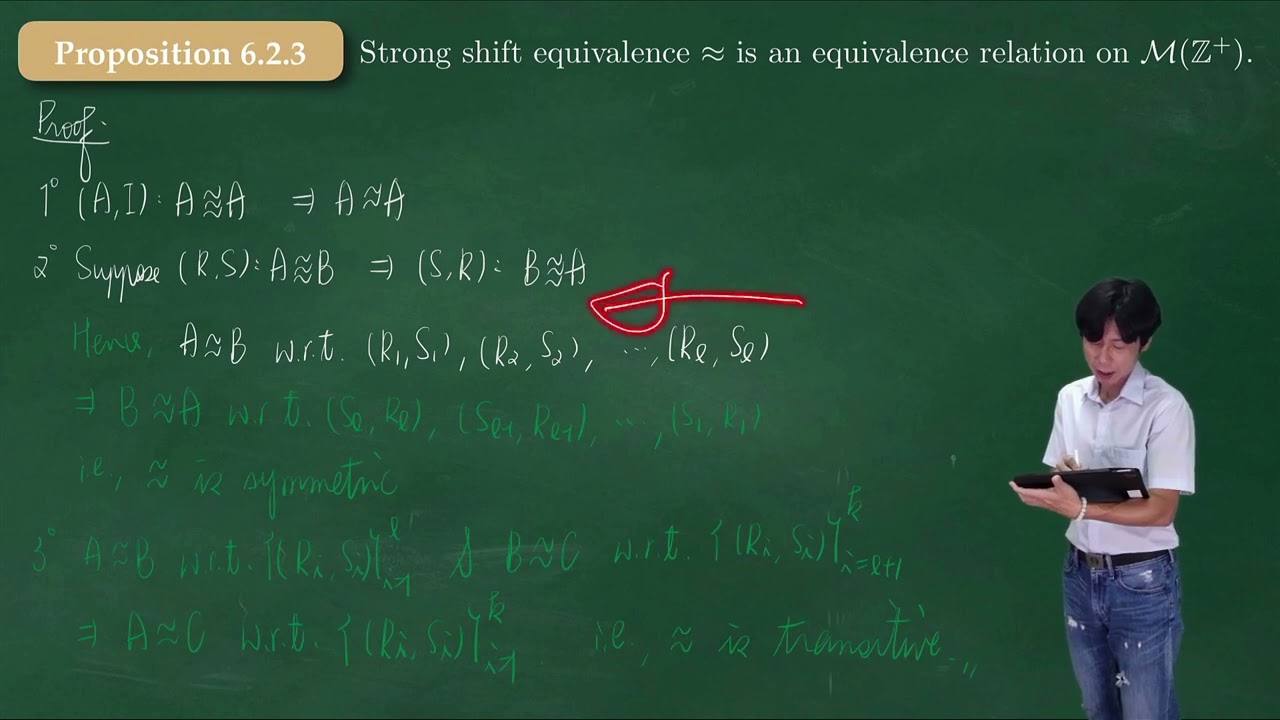 Proposition 6.2.3 Strong shift equivalence ≈ is an equivalence relation on ℳ(ℤ⁺).
Proof:
1° (A,I): A≋A ⇒ A≈A
2° Suppose (R,S): A≋B ⇒ (S,R): B≋A
Hence, A≈B w.r.t. (R₁,S₁), (R₂,S₂), ⋯, (R_ℓ,S_ℓ)
⇒ B≈A w.r.t. (S_ℓ,R_ℓ), (S_{ℓ-1},R_{ℓ-1}), ⋯, (S₁,R₁)
i.e., ≈ is symmetric
3° A≈B w.r.t. {(Rᵢ,Sᵢ)}_{i=1}^ℓ & B≈C w.r.t. {(Rᵢ,Sᵢ)}_{i=ℓ+1}^k
⇒ A≈C w.r.t. {(Rᵢ,Sᵢ)}_{i=1}^k i.e., ≈ is transitive.,,